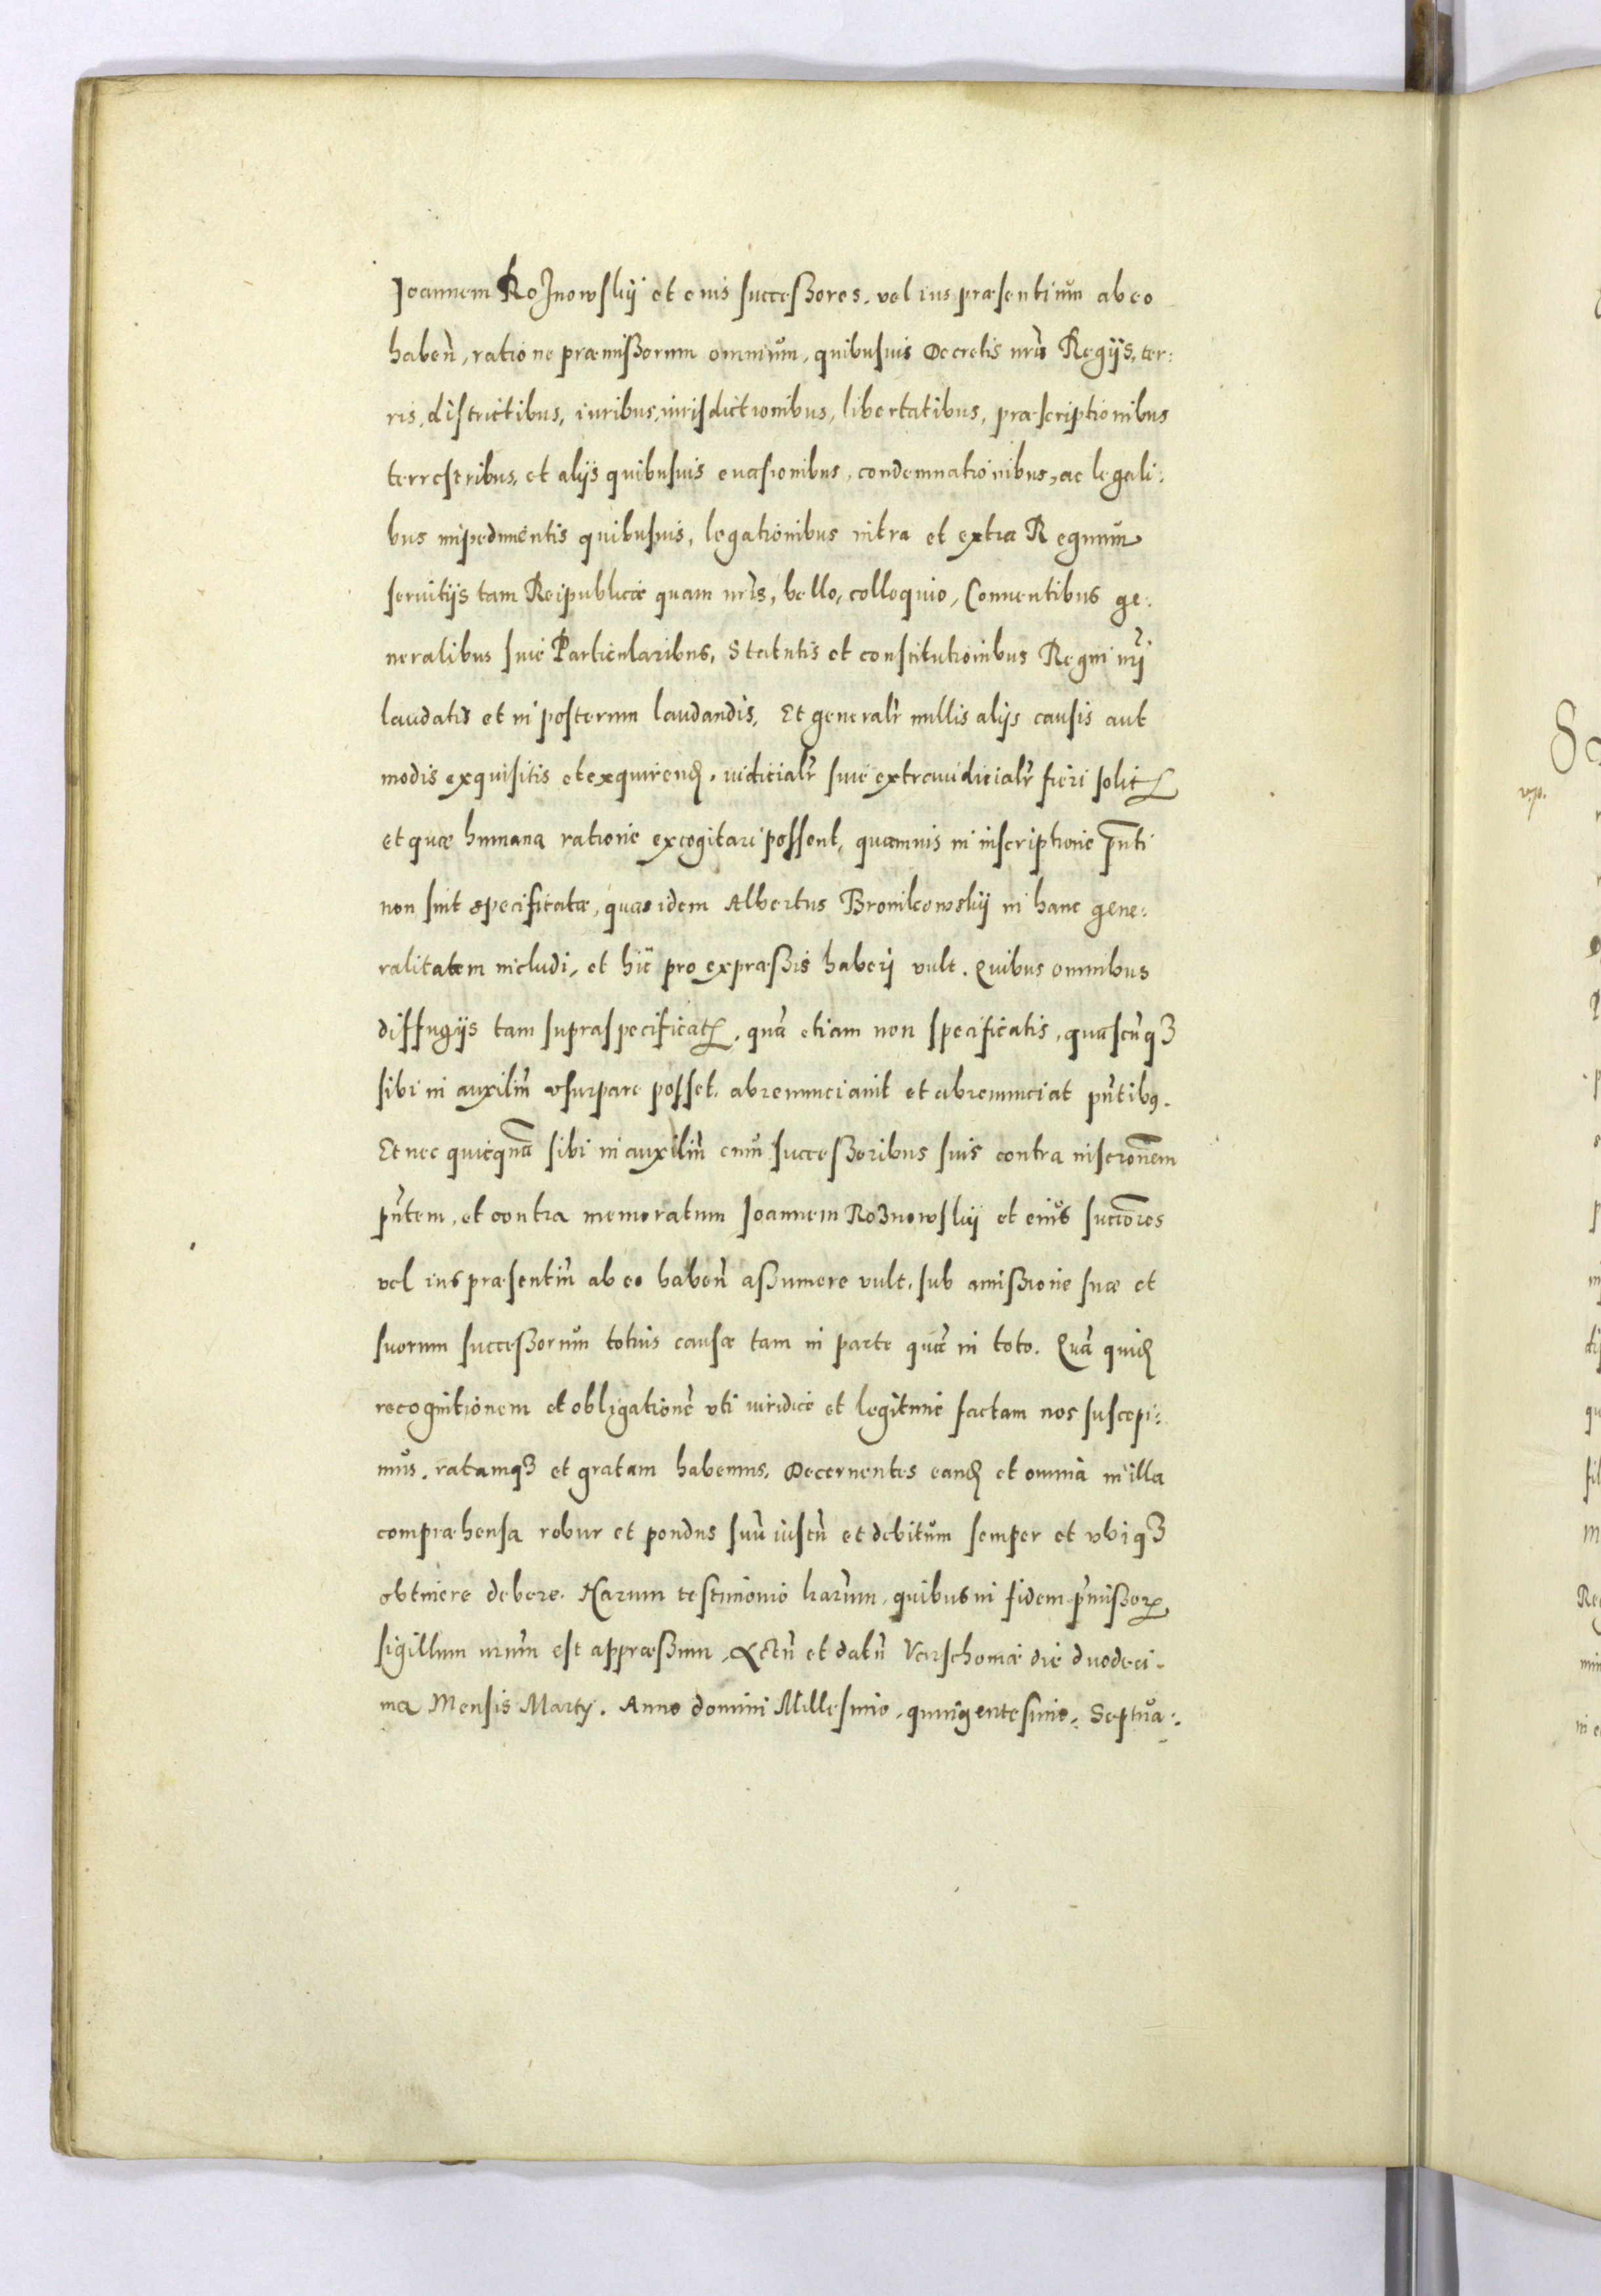 Joannem Roznowskij et eius successores, vel ius præsentium ab eo
haben̄, ratione præmissorum omnium, quibusuis Decretis nr̄is Regijs, ter:
ris, districtibus, iuribus, iurisdictionibus, libertatibus, præscriptionibus
terrestribus, et alijs quibusuis euasionibus, condemnationibus, ac legali:
bus impedimentis quibusuis, legationibus intra et extra Regnum
seruitijs tam Reipublicæ quam nr̄is, bello, colloquio, Conuentibus ge:
neralibus siue Particularibus, Statutis et constitutionibus Regni nr̄j
laudatis et in posterum laudandis, Et generalr̄ nullis alijs causis aut
modis exquisitis et exquirend, iudicialr̄ siue extraiudicialr̄ fieri solit
et quæ humana ratione excogitari possent, quamuis in inscriptione pn̄ti
non sint specificatæ, quas idem Albertus Bronikowskij in hanc gene:
ralitatem includi, et hic pro expræssis haberj vult. Quibus omnibus
diffugijs tam supraspecificat, quā etiam non specificatis, quascūqꝫ
sibi in auxiliū vsurpare posset, abrenunciauit et abrenunciat pn̄tibꝯ.
Et nec quicquā sibi in auxiliū cum successoribus suis contra inscrōnem
pn̄tem, et contra memoratum Joannem Roznowskij et eius succrōres
vel ius præsentiū ab eo haben̄ assumere vult, sub amissione suæ et
suorum successorum totius causæ tam in parte quā in toto. Quā quid
recognitionem et obligationē vti iuridice et legitime factam nos suscepi:
mus, ratamqꝫ et gratam habemus, Decernentes eand et omnia in illa
compræhensa robur et pondus suū iustū et debitum semper et vbiqꝫ
obtinere debere. Harum testimonio lr̄arum, quibus in fidem pr̄missorꝝ
sigillum nr̄um est appræssum, Actū et datū Varschouiæ die duodeci-
ma Mensis Martij. Anno domini Millesimo, quingentesimo, Septua: